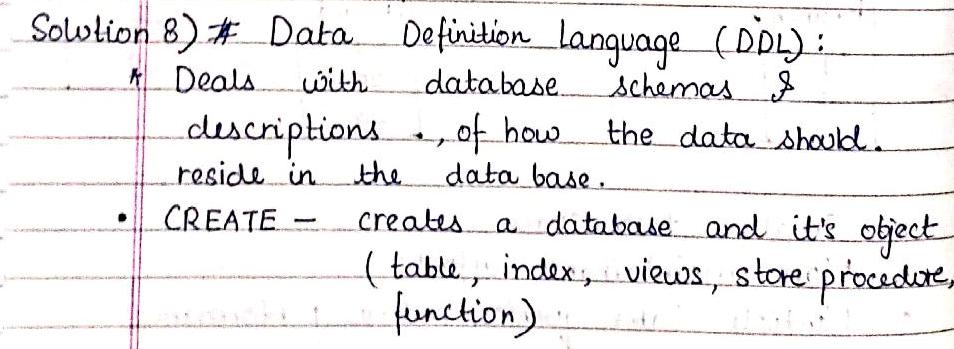 Solution 8) # Data Definition Language (DDL) :
* Deals with database schemas &
descriptions . , of how the data should.
reside in the data base.
• CREATE — creates a database and it's object
( table, index, views, store procedure,
function)